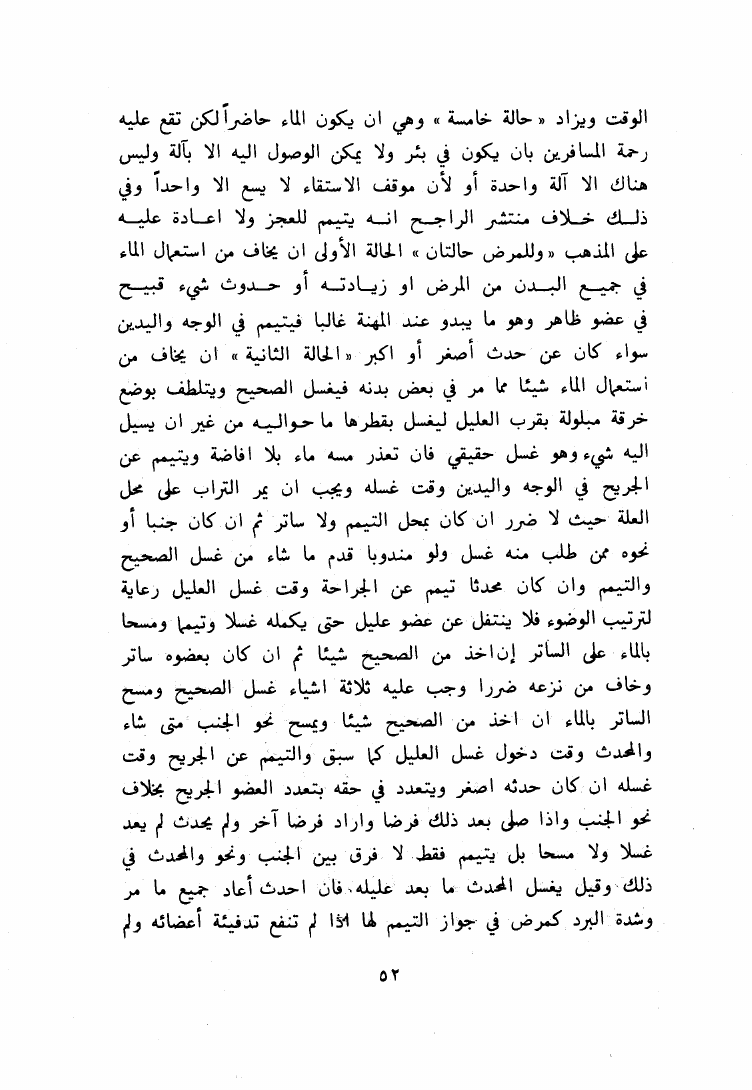 الوقت ويزاد «حالة خامسة» وهي ان يكون الماء حاضراً لكن تقع عليه
رحمة المسافرين بان يكون في بئر ولا يمكن الوصول اليه الا بآلة وليس
هناك الا آلة واحدة أو لأن موقف الاستقاء لا يسع الا واحداً وفي
ذلك خلاف منتشر الراجح انه يتيمم للعجز ولا اعادة عليه
على المذهب «وللمرض حالتان» الحالة الأولى ان يخاف من استعمال الماء
في جميع البدن من المرض او زيادته أو حدوث شيء قبيح
في عضو ظاهر وهو ما يبدو عند المهنة غالبا فيتيمم في الوجه واليدين
سواء كان عن حدث أصغر أو اكبر «الحالة الثانية» ان يخاف من
استعمال الماء شيئا مما مر في بعض بدنه فيغسل الصحيح ويتلطف بوضع
خرقة مبلولة بقرب العليل ليغسل بقطرها ما حواليه من غير ان يسيل
اليه شيء وهو غسل حقيقي فان تعذر مسه ماء بلا افاضة ويتيمم عن
الجريح في الوجه واليدين وقت غسله ويجب ان يمر التراب على محل
العلة حيث لا ضرر ان كان بمحل التيمم ولا ساتر ثم ان كان جنبا أو
نحوه ممن طلب منه غسل ولو مندوبا قدم ما شاء من غسل الصحيح
والتيمم وان كان محدثا تيمم عن الجراحة وقت غسل العليل رعاية
لترتيب الوضوء فلا ينتفل عن عضو عليل حتى يكمله غسلا وتيمما ومسحا
بالماء على الساتر إن اخذ من الصحيح شيئا ثم ان كان بعضوه ساتر
وخاف من نزعه ضررا وجب عليه ثلاثة اشياء غسل الصحيح ومسح
الساتر بالماء ان اخذ من الصحيح شيئا ويمسح نحو الجنب متى شاء
والمحدث وقت دخول غسل العليل كما سبق والتيمم عن الجريح وقت
غسله ان كان حدثه اصغر ويتعدد في حقه بتعدد العضو الجريح بخلاف
نحو الجنب واذا صلى بعد ذلك فرضا واراد فرضا آخر ولم يحدث لم يعد
غسلا ولا مسحا بل يتيمم فقط لا فرق بين الجنب ونحو والمحدث في
ذلك وقيل يغسل المحدث ما بعد عليله. فان احدث أعاد جميع ما مر
وشدة البرد كمرض في جواز التيمم لها اذا لم تنفع تدفيئة أعضائه ولم
٥٢